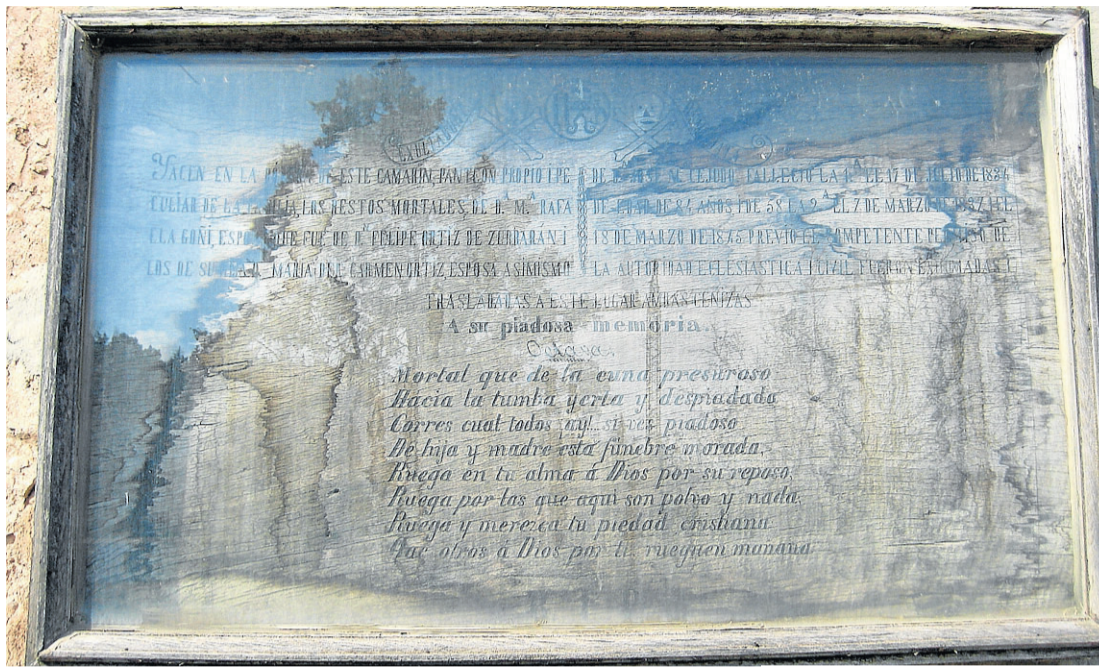 YACEN EN LA DE ESTE CAMARIN, PANTEON PROPIO I PE
CULIAR DE LA FAMILIA, LOS RESTOS MORTALES, DE D. M.ª RAFA
ELA GOÑI, ESPOSA QUE FUE DE D. FELIPE ORTIZ DE ZURBARÁN I
LOS DE SU HIJA D. MARIA DEL CARMEN ORTIZ, ESPOSA ASIMISMO
DE D. FALLECIO LA 1.ª EL 17 DE JULIO DE
DE EDAD DE 84 AÑOS I DE 58 LA 2.ª EL 7 DE MARZO DE I EL
18 DE MARZO DE PREVIO COMPETENTE DE
LA AUTORIDAD ECLESIASTICA I CIVIL, FUERON EXHUMADAS I
TRASLADADAS A ESTE LUGAR AMBAS CENIZAS
A su piadosa memoria.
Octava.
Mortal que de la cuna presuroso
Hacia la tumba yerta y despiadada
Corres cual todos ¡ay!.. si ves piadoso
De hija y madre esta fúnebre morada,
Ruega en tu alma á Dios por su reposo,
Ruega por las que aqui son polvo y nada;
Ruega y merezca tu piedad cristiana
Que otros á Dios por ti rueguen mañana